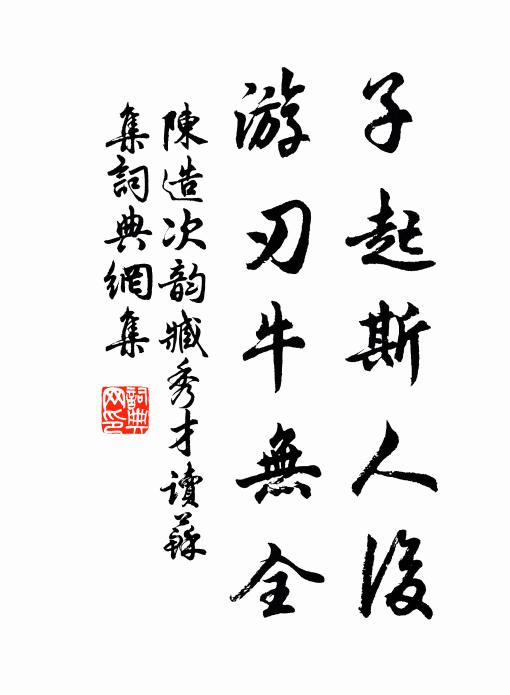 子起斯人後
游刃牛無全
陳造次韵臧秀才讀蘇
集詞典網集
詞典
网印